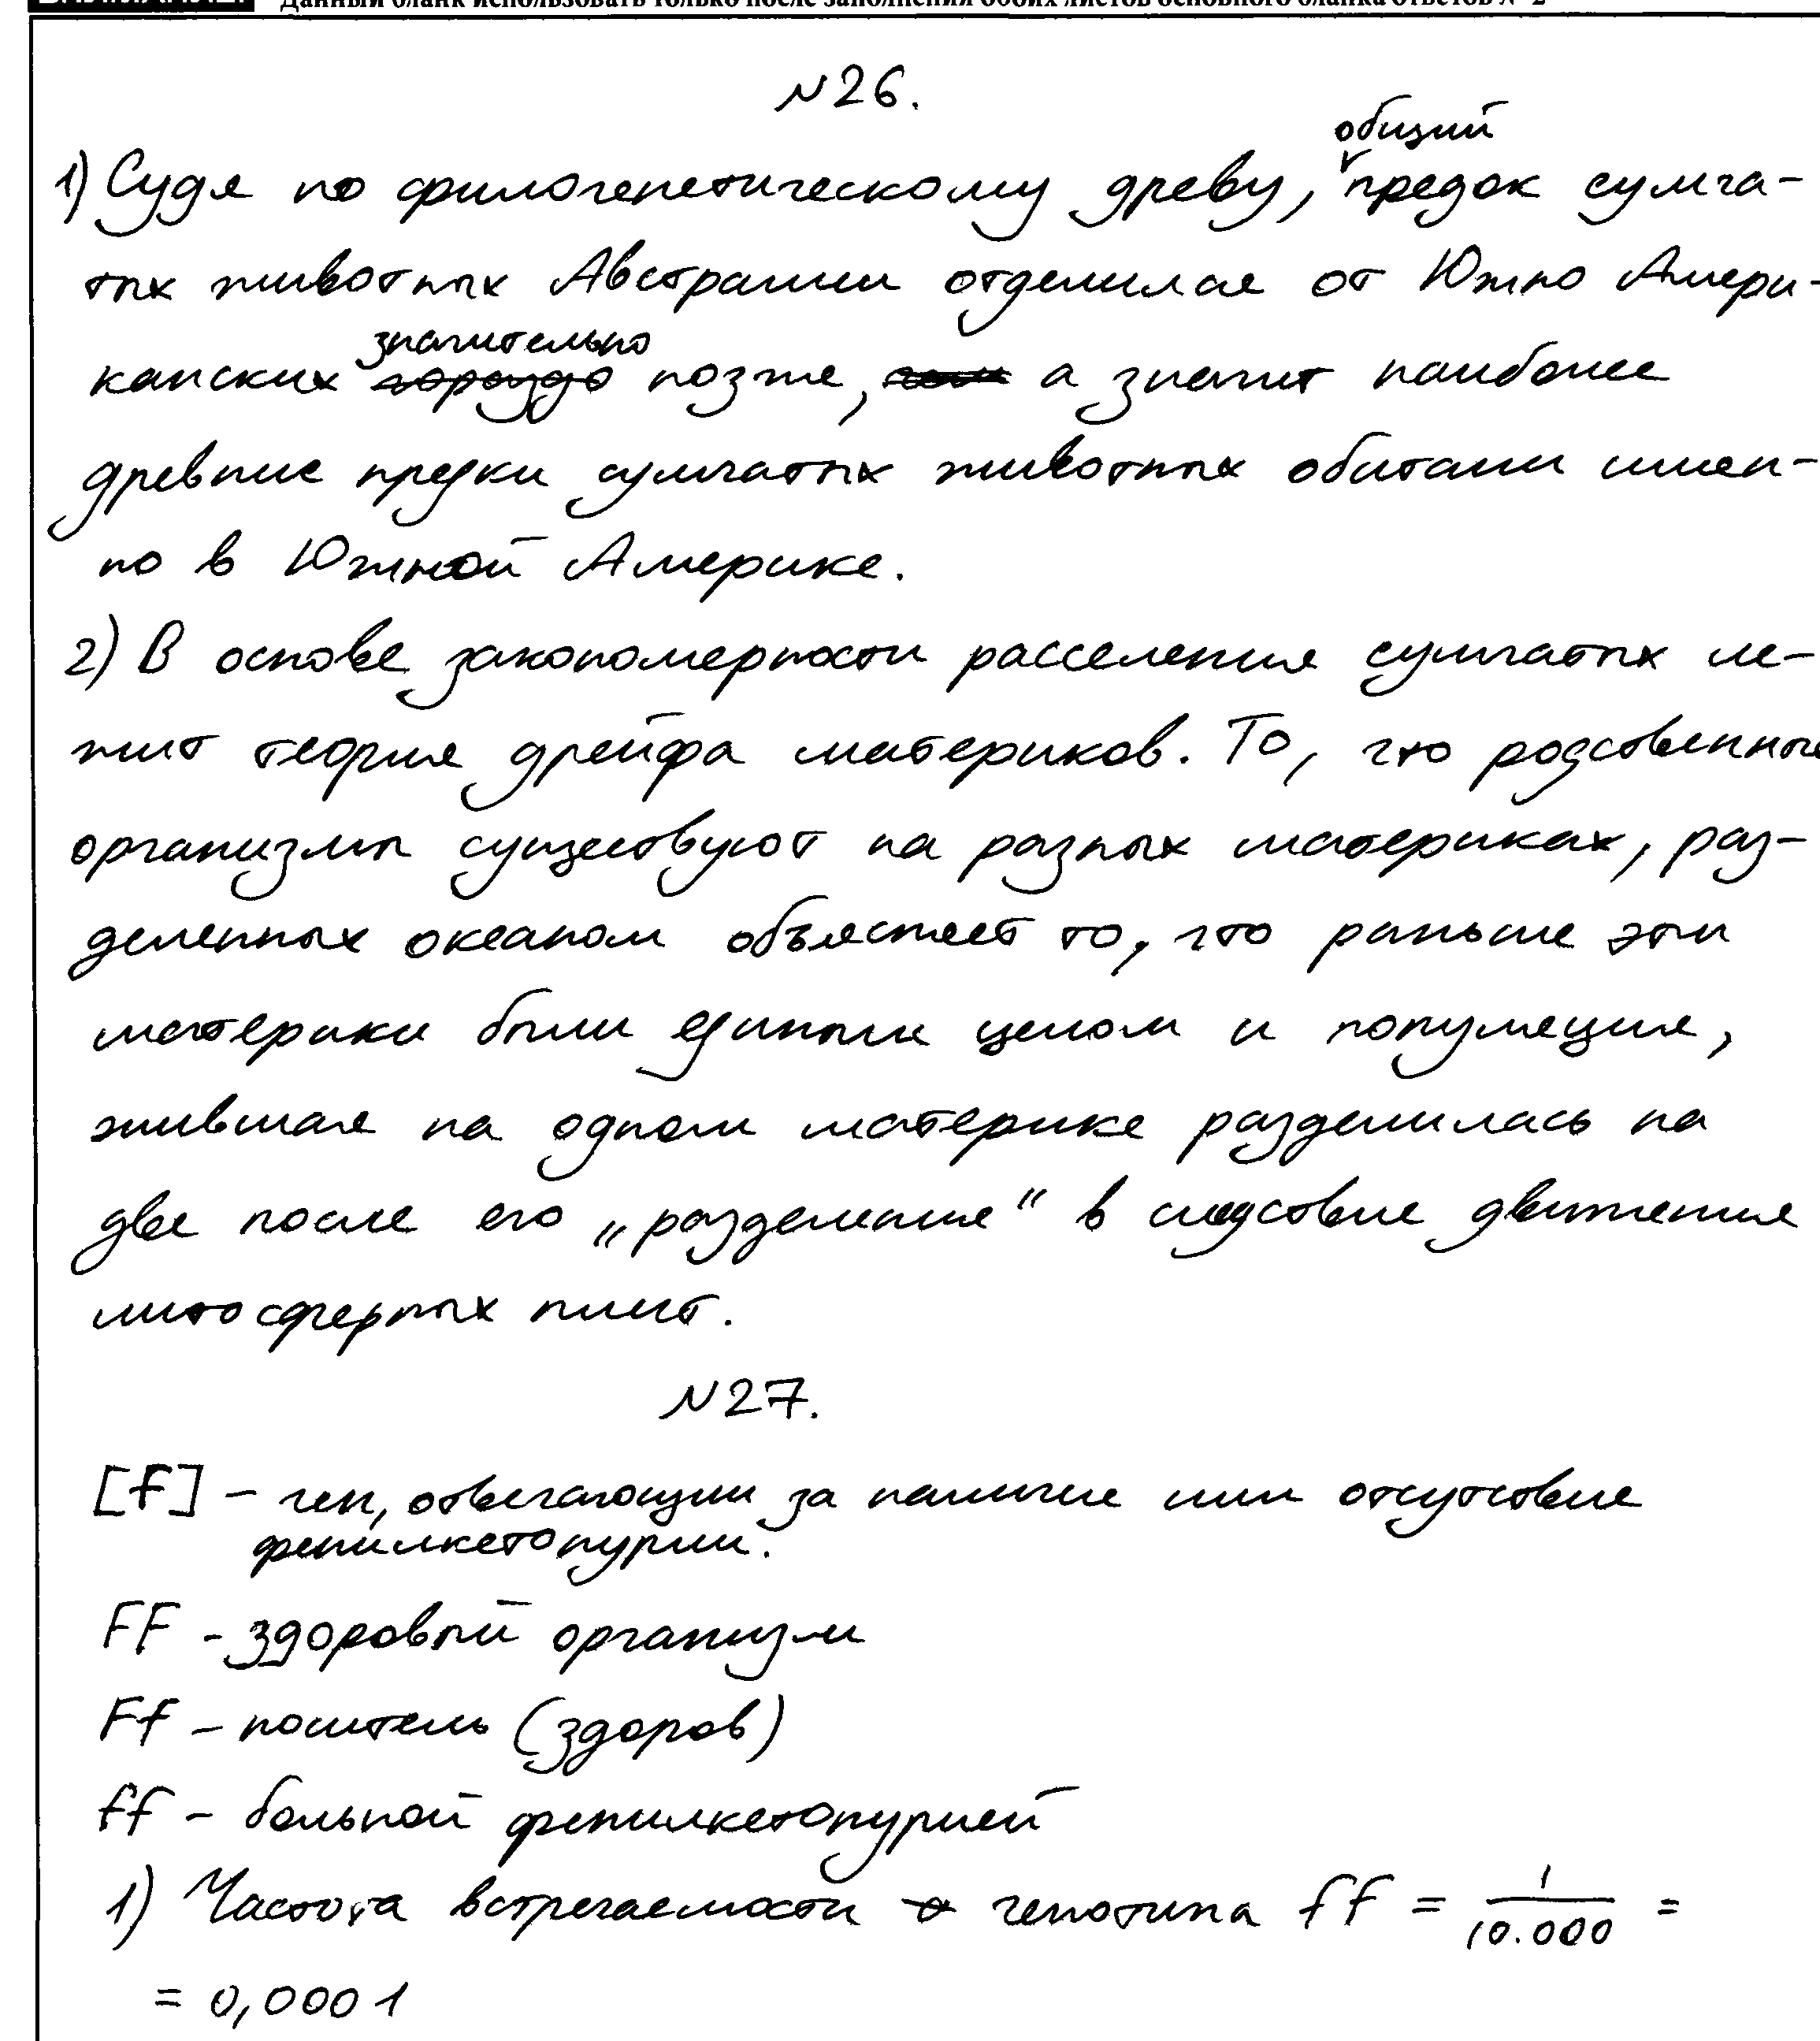 Данный бланк использовать только после заполнения обоих листов основного бланка ответов № 2
№26.
общий
1) Судя по филогенетическому древу, предок сумча-
тых животных Австралии отделился от Южно Амери-
значительно
канских гораздо позже, чем а значит наиболее
древние предки сумчатых животных обитали имен-
но в Южной Америке.
2) В основе закономерности расселения сумчатых ле-
жит теория дрейфа материков. То, что родственные
организмы существуют на разных материках, раз-
деленных океаном объясняет то, что раньше эти
материки были единым целом и популяция,
жившая на одном материке разделилась на
две после его „разделения“ в следствие движения
литосферных плит.
№27.
[f] – ген, отвечающий за наличие или отсутствие
фенилкетонурии.
FF - здоровый организм
Ff – носитель (здоров)
ff – больной фенилкетонурией
1) Частота встречаемости генотипа ff = 1/10.000 =
= 0,0001